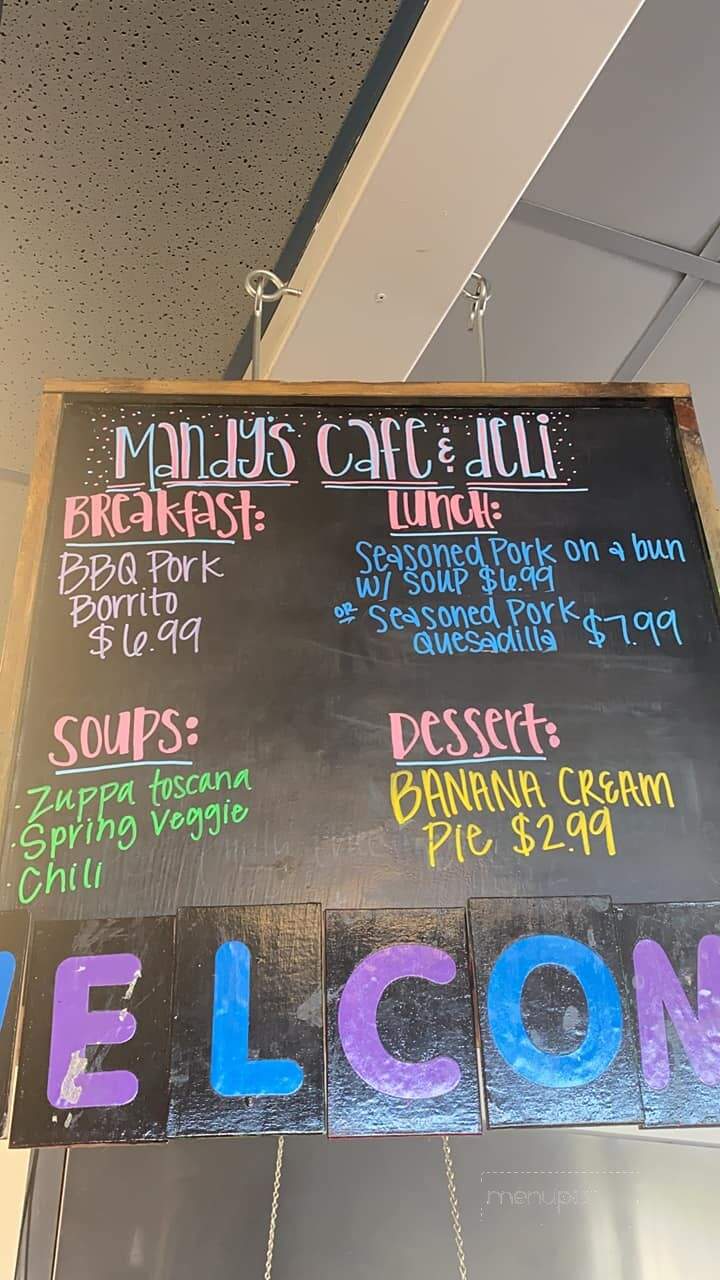 Mandy's Cafe & Deli
Breakfast:
BBQ Pork
Borrito
$6.99
Lunch:
Seasoned Pork on a bun
w/ soup $6.99
or Seasoned Pork
quesadilla $7.99
Soups:
· Zuppa toscana
· Spring veggie
· Chili
Dessert:
BANANA CREAM
Pie $2.99
WELCOM
menupix